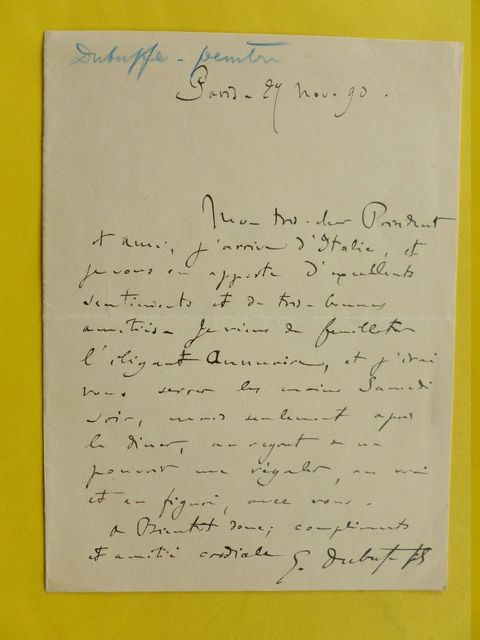 Dubuffe - peintre
Paris - 27 Nov. 90.
Mon très cher Président
et ami, j'arrive d'Italie, et
je vous en apporte d'excellents
sentiments et de très bonnes
amitiés - Je viens de feuilleter
l'élégant Annuaire, et j'irai
vous serrer les mains Samedi
soir, mais seulement après
le diner, au regret de ne
pouvoir me régaler, au vrai
et au figuré, avec vous.
a Bientôt donc; compliments
et amitié cordiale G. Dubufe fils